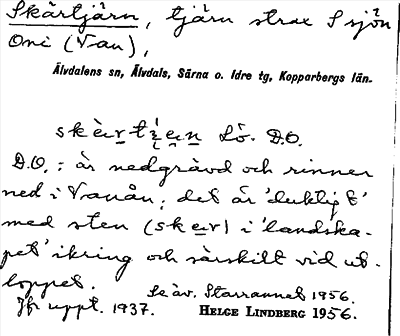 Skärtjärn, tjärn strax S sjön
Oni (Van),
Älvdalens sn, Älvdals, Särna o. Idre tg, Kopparbergs län.
skèrtięn Lö. D.O.
D.O.: är nedgrävd och rinner
ned i Vanån, det är 'duktigt'
med sten (sker) i 'landska-
pet' ikring och särskilt vid ut-
loppet. Se äv. Starrannet 1956.
Jfr uppt. 1937. HELGE LINDBERG 1956.